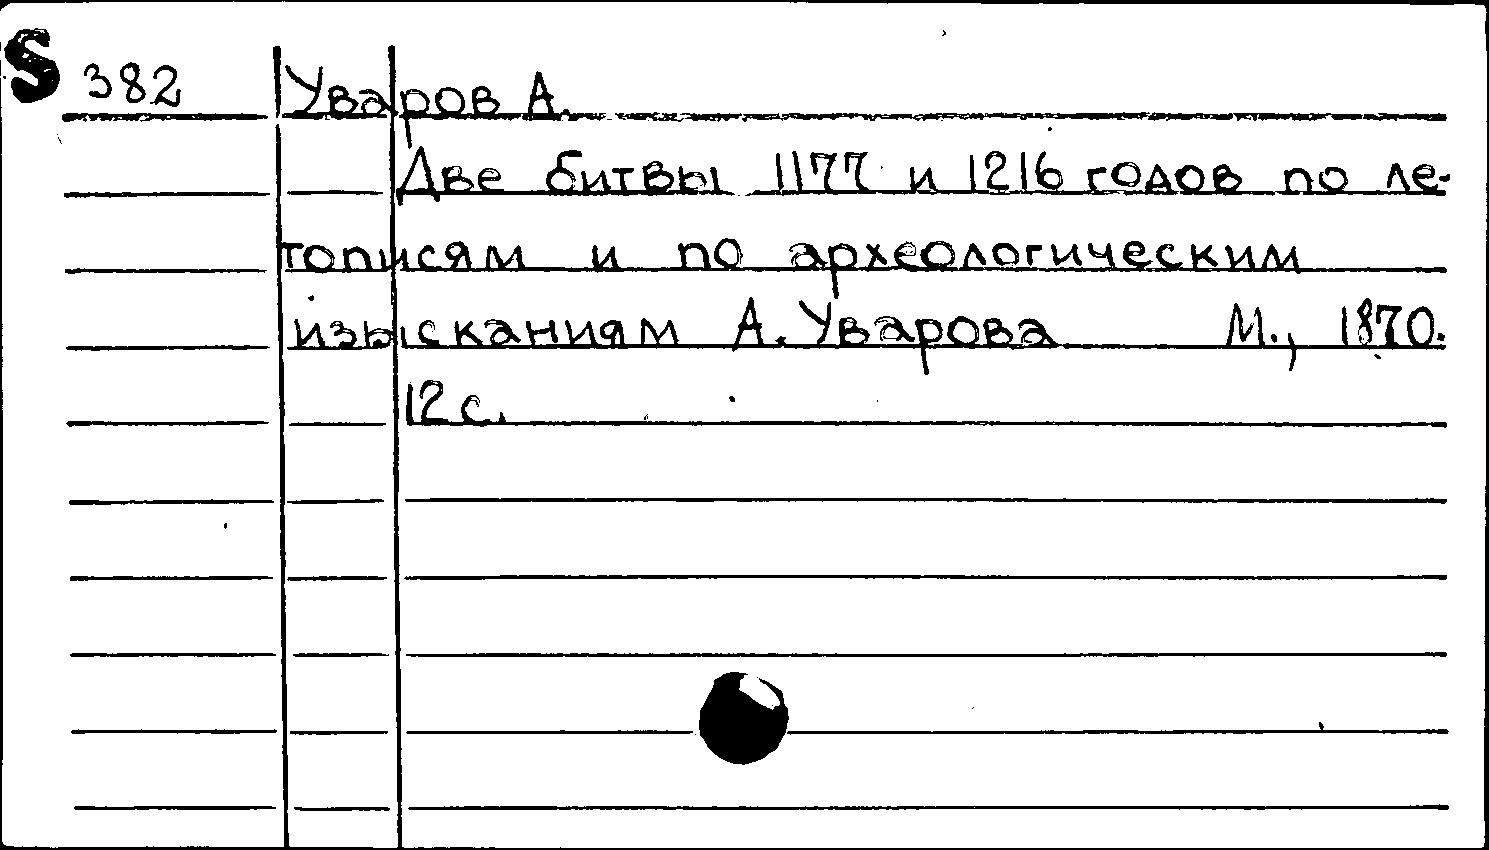 S 382 Уваров А.
Две битвы 1177 и 1216 годов по ле-
тописям и по археологическим
изысканиям А. Уварова М., 1870.
12 с.